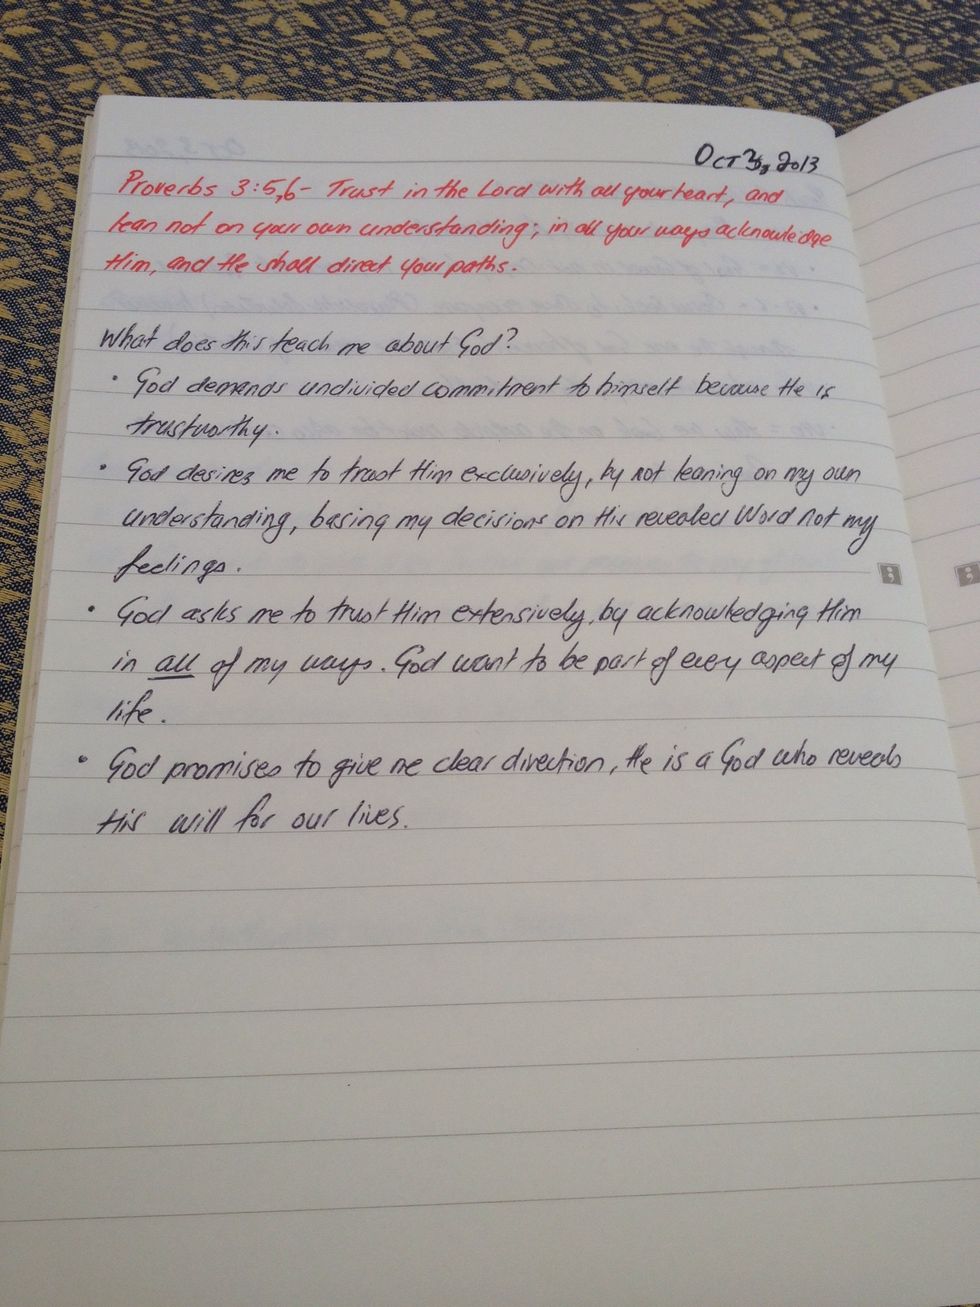 Oct 3, 2013
Proverbs 3:5,6- Trust in the Lord with all your heart, and
lean not on your own understanding; in all your ways acknowledge
Him, and He shall direct your paths.
What does this teach me about God?
• God demands undivided commitment to himself because He is
trustworthy.
• God desires me to trust Him exclusively, by not leaning on my own
understanding, basing my decisions on His revealed Word not my
feelings.
• God asks me to trust Him extensively, by acknowledging Him
in all of my ways. God want to be part of every aspect of my
life.
• God promises to give me clear direction, He is a God who reveals
His will for our lives.